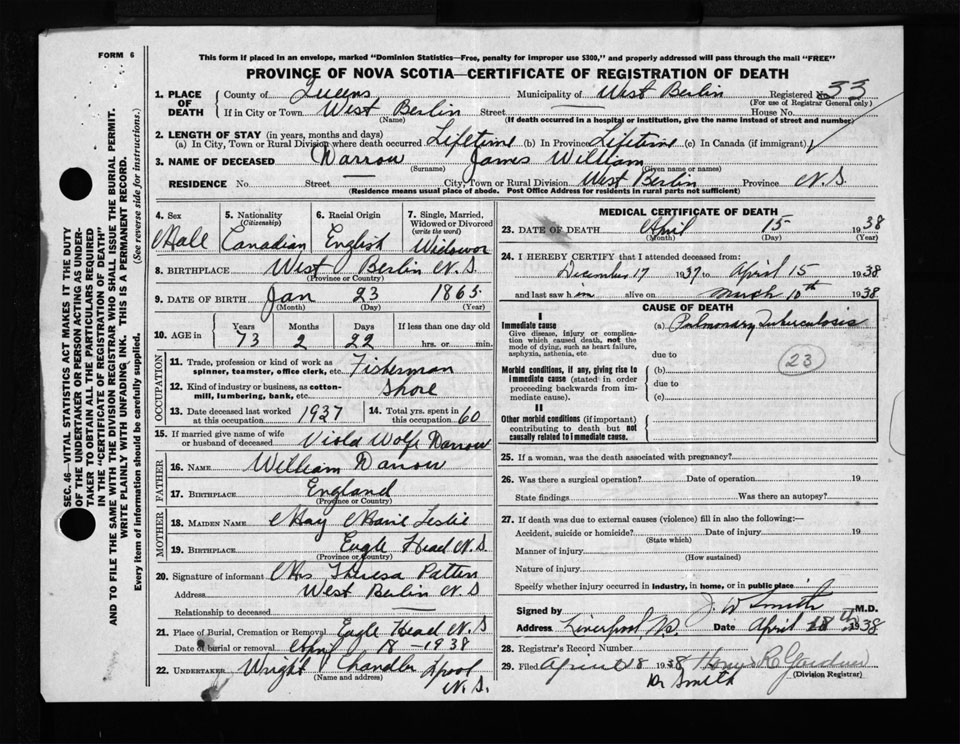 FORM 6
This form if placed in an envelope, marked "Dominion Statistics—Free, penalty for improper use $300," and properly addressed will pass through the mail "FREE"
PROVINCE OF NOVA SCOTIA—CERTIFICATE OF REGISTRATION OF DEATH
SEC. 46—VITAL STATISTICS ACT MAKES IT THE DUTY
OF THE UNDERTAKER OR PERSON ACTING AS UNDER-
TAKER TO OBTAIN ALL THE PARTICULARS REQUIRED
IN THE "CERTIFICATE OF REGISTRATION OF DEATH"
AND TO FILE THE SAME WITH THE DIVISION REGISTRAR WHO SHALL ISSUE THE BURIAL PERMIT.
WRITE PLAINLY WITH UNFADING INK. THIS IS A PERMANENT RECORD.
Every item of information should be carefully supplied. (See reverse side for instructions.)
1. PLACE OF DEATH County of Queens Municipality of West Berlin Registered No. 33
(For use of Registrar General only)
If in City or Town West Berlin Street House No.
(Name) (If death occurred in a hospital or institution, give the name instead of street and number)
2. LENGTH OF STAY (in years, months and days)
(a) In City, Town or Rural Division where death occurred Lifetime (b) In Province Lifetime (c) In Canada (if immigrant)
3. NAME OF DECEASED Darrow James William
(Surname) (Given name or names)
RESIDENCE No. Street City, Town or Rural Division West Berlin Province N.S
(Residence means usual place of abode. Post Office Address for residents in rural parts not sufficient)
4. Sex Male
5. Nationality (Citizenship) Canadian
6. Racial Origin English
7. Single, Married, Widowed or Divorced (write the word) Widower
8. BIRTHPLACE West Berlin N.S.
(Province or Country)
9. DATE OF BIRTH Jan 23 1865
(Month) (Day) (Year)
10. AGE in Years 73 Months 2 Days 22 If less than one day old hrs. or min.
OCCUPATION
11. Trade, profession or kind of work as spinner, teamster, office clerk, etc. Fisherman
12. Kind of industry or business, as cotton-mill, lumbering, bank, etc. Shore
13. Date deceased last worked at this occupation 1937
14. Total yrs. spent in this occupation 60
15. If married give name of wife or husband of deceased Viola Wolfe Darrow
FATHER
16. NAME William Darrow
17. BIRTHPLACE England
(Province or Country)
MOTHER
18. MAIDEN NAME May Marie Leslie
19. BIRTHPLACE Eagle Head N.S.
(Province or Country)
20. Signature of informant Mrs Theresa Patten
Address West Berlin N.S
Relationship to deceased
21. Place of Burial, Cremation or Removal Eagle Head N.S
Date of burial or removal April 18 1938
22. UNDERTAKER Wright Chandler Lpool
(Name and address) N.S.
MEDICAL CERTIFICATE OF DEATH
23. DATE OF DEATH April 15 1938
(Month) (Day) (Year)
24. I HEREBY CERTIFY that I attended deceased from:
December 17 1937 to April 15 1938
and last saw him alive on March 10th 1938
CAUSE OF DEATH
I
Immediate cause (a) Pulmonary Tuberculosis
Give disease, injury or complica-
tion which caused death, not the
mode of dying, such as heart failure,
asphyxia, asthenia, etc
due to
23
Morbid conditions, if any, giving rise to
immediate cause (stated in order
proceeding backwards from im-
mediate cause).
(b)
due to
(c)
II
Other morbid conditions (if important)
contributing to death but not
causally related to immediate cause.
25. If a woman, was the death associated with pregnancy?
26. Was there a surgical operation? Date of operation 19
State findings Was there an autopsy?
27. If death was due to external causes (violence) fill in also the following:—
Accident, suicide or homicide? Date of injury 19
(State which)
Manner of injury
(How sustained)
Nature of injury
Specify whether injury occurred in industry, in home, or in public place
Signed by J. W Smith M.D.
Address Liverpool N.S. Date April 18th 1938
28. Registrar's Record Number
29. Filed April 18 1938
(Division Registrar)
Dr Smith